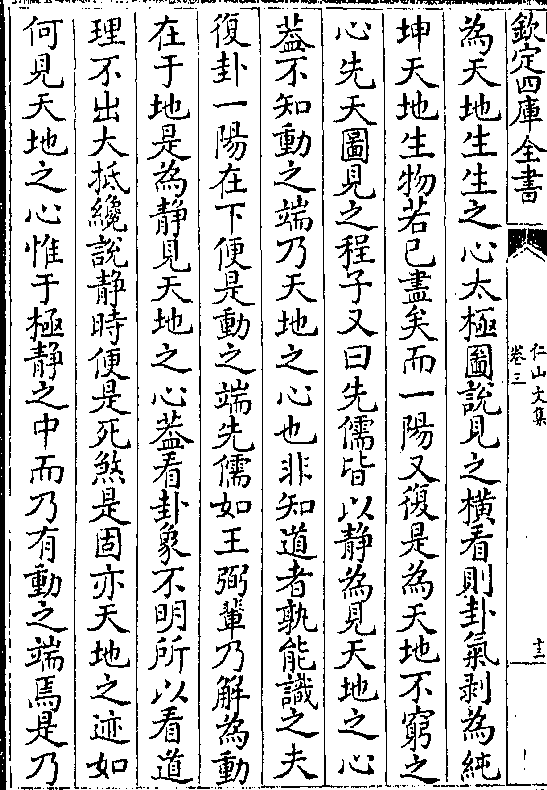 欽定四庫全書
仁山文集
卷三
十二
為天地生生之心太極圖說見之橫看則卦氣剥為純
坤天地生物若已盡矣而一陽又復是為天地不窮之
心先天圖見之程子又曰先儒皆以静為見天地之心
葢不知動之端乃天地之心也非知道者孰能識之夫
復卦一陽在下便是動之端先儒如王弼輩乃解為動
在于地是為静見天地之心葢看卦象不明所以看道
理不出大抵纔說静時便是死煞是固亦天地之迹如
何見天地之心惟于極静之中而乃有動之端焉是乃